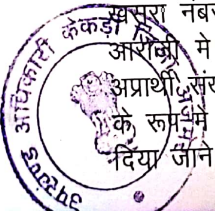 खसरा नंबर
आराजी मे
अप्रार्थी
के रूप मे
दिया जाने
उपखण्ड अधिकारी केकड़ी